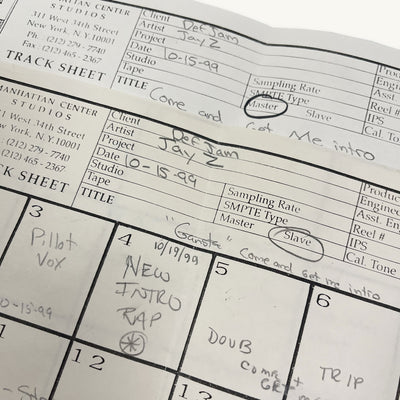 MANHATTAN CENTER
STUDIOS
311 West 34th Street
New York, N.Y. 10001
Ph. (212) 279 - 7740
Fax - (212) 465 - 2367
TRACK SHEET
Client Def Jam
Artist Jay Z
Project
Date 10-15-99
Studio
Tape
TITLE Come and Get Me intro
Sampling Rate
SMPTE Type
Master Slave
Engineer
Asst
Reel #
IPS
Cal. Tone
MANHATTAN CENTER
STUDIOS
311 West 34th Street
New York, N.Y. 10001
(212) 279 - 7740
(212) 465 - 2367
TRACK SHEET
Client Def Jam
Artist Jay Z
Project
Date 10-15-99
Studio
Tape
TITLE "Gansta" Come and get me intro
Sampling Rate
SMPTE Type
Master Slave
Produce
Engineer
Asst. En
Reel #
IPS
Cal. Tone
3
Pillot
Vox
10-15-99
4 10/19/99
NEW
INTRO
RAP
5
DOUB
6
TRIP
12
13